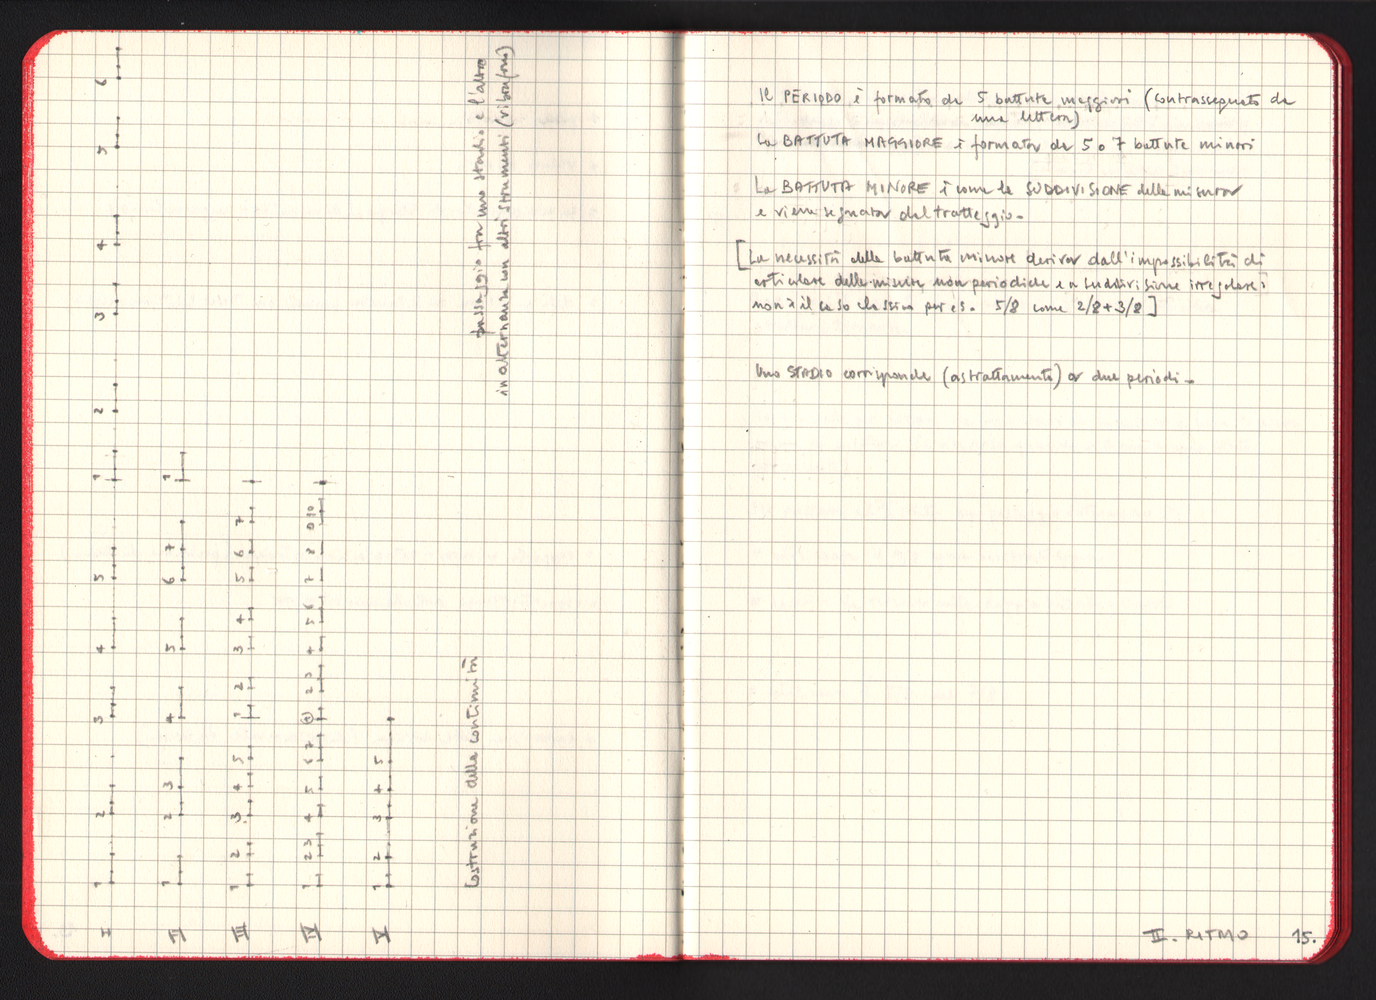 I 1 2 3 4 5 1 2 3 4 5 6
II 1 2 3 4 5 6 7 1
III 1 2 3 4 5 1 2 3 4 5 6 7
IV 1 2 3 4 5 6 7 (1) 2 3 4 5 6 7 8 9 10
V 1 2 3 4 5
Costruzione della continuità
passaggio tra uno stadio e l'altro
in alternanza con altri strumenti (vibrafono)
Il PERIODO è formato da 5 battute maggiori (contrassegnato da
una lettera)
La BATTUTA MAGGIORE è formata da 5 o 7 battute minori
La BATTUTA MINORE è come la SUDDIVISIONE della misura
e viene segnata dal tratteggio.
[La necessità della battuta minore deriva dall'impossibilità di
articolare delle misure non periodiche e a suddivisione irregolare:
non è il caso classico per es. 5/8 come 2/8+3/8]
Uno STADIO corrisponde (astrattamente) a due periodi.
II. RITMO 15.